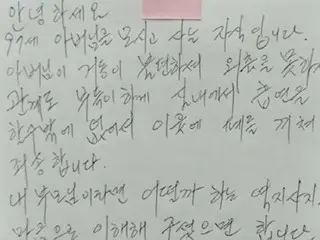 안녕하세요
97세 아버님을 모시고 사는 자식입니다.
아버님이 거동이 불편하셔 외출을 못하
관계로 부득이하게 실내에서 흡연을
할수밖에 없어서 이웃에 폐를 끼쳐
죄송합니다.
내 부모님이라면 어떨까 하는 역지사지
마음으로 이해해 주셨으면 합니다.